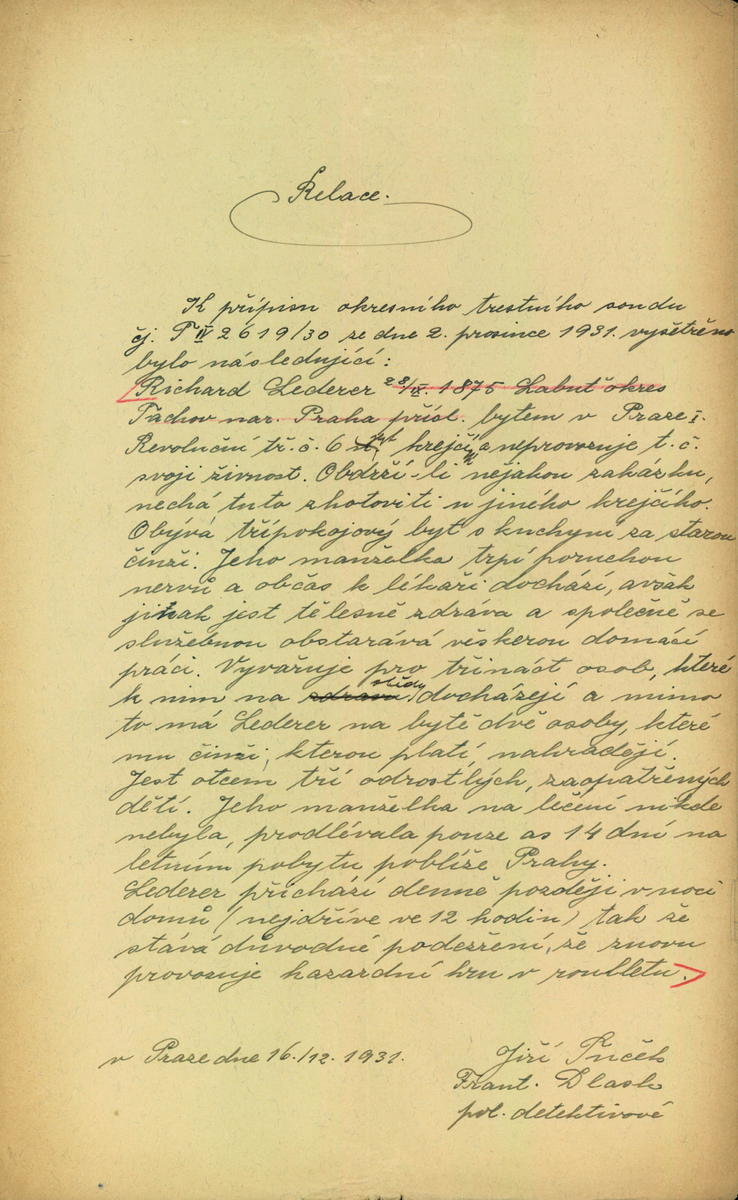 Relace.
K přípisu okresního trestního soudu
čj. T IV 2619/30 ze dne 2. prosince 1931. vyšetřeno
bylo následující:
Richard Lederer 28/IX. 1875 Labuť okres
Tachov nar. Praha přísl. bytem v Praze I.
Revoluční tř. č. 6 jest krejčím a neprovozuje t. č.
svoji živnost. Obdrží-li nějakou zakázku,
nechá tuto zhotoviti u jiného krejčího.
Obývá třípokojový byt s kuchyní za starou
činži. Jeho manželka trpí poruchou
nervů a občas k lékaři dochází, avšak
jinak jest tělesně zdráva a společně se
služebnou obstarává věškerou domácí
práci. Vyvařuje pro třináct osob, které
k nim na obědy docházejí a mimo
to má Lederer na bytě dvě osoby, které
mu činži, kterou platí, nahrazují.
Jest otcem tří odrostlých, zaopatřených
dětí. Jeho manželka na léčení nikde
nebyla, prodlévala pouze as 14 dní na
letním pobytu poblíže Prahy.
Lederer přichází denně později v noci
domů (nejdříve ve 12 hodin) tak že
stává důvodné podezření, že znovu
provozuje hazardní hru v roubletu.
v Praze dne 16./12. 1931.
Jiří
Frant. Dlask
pol. detektivové